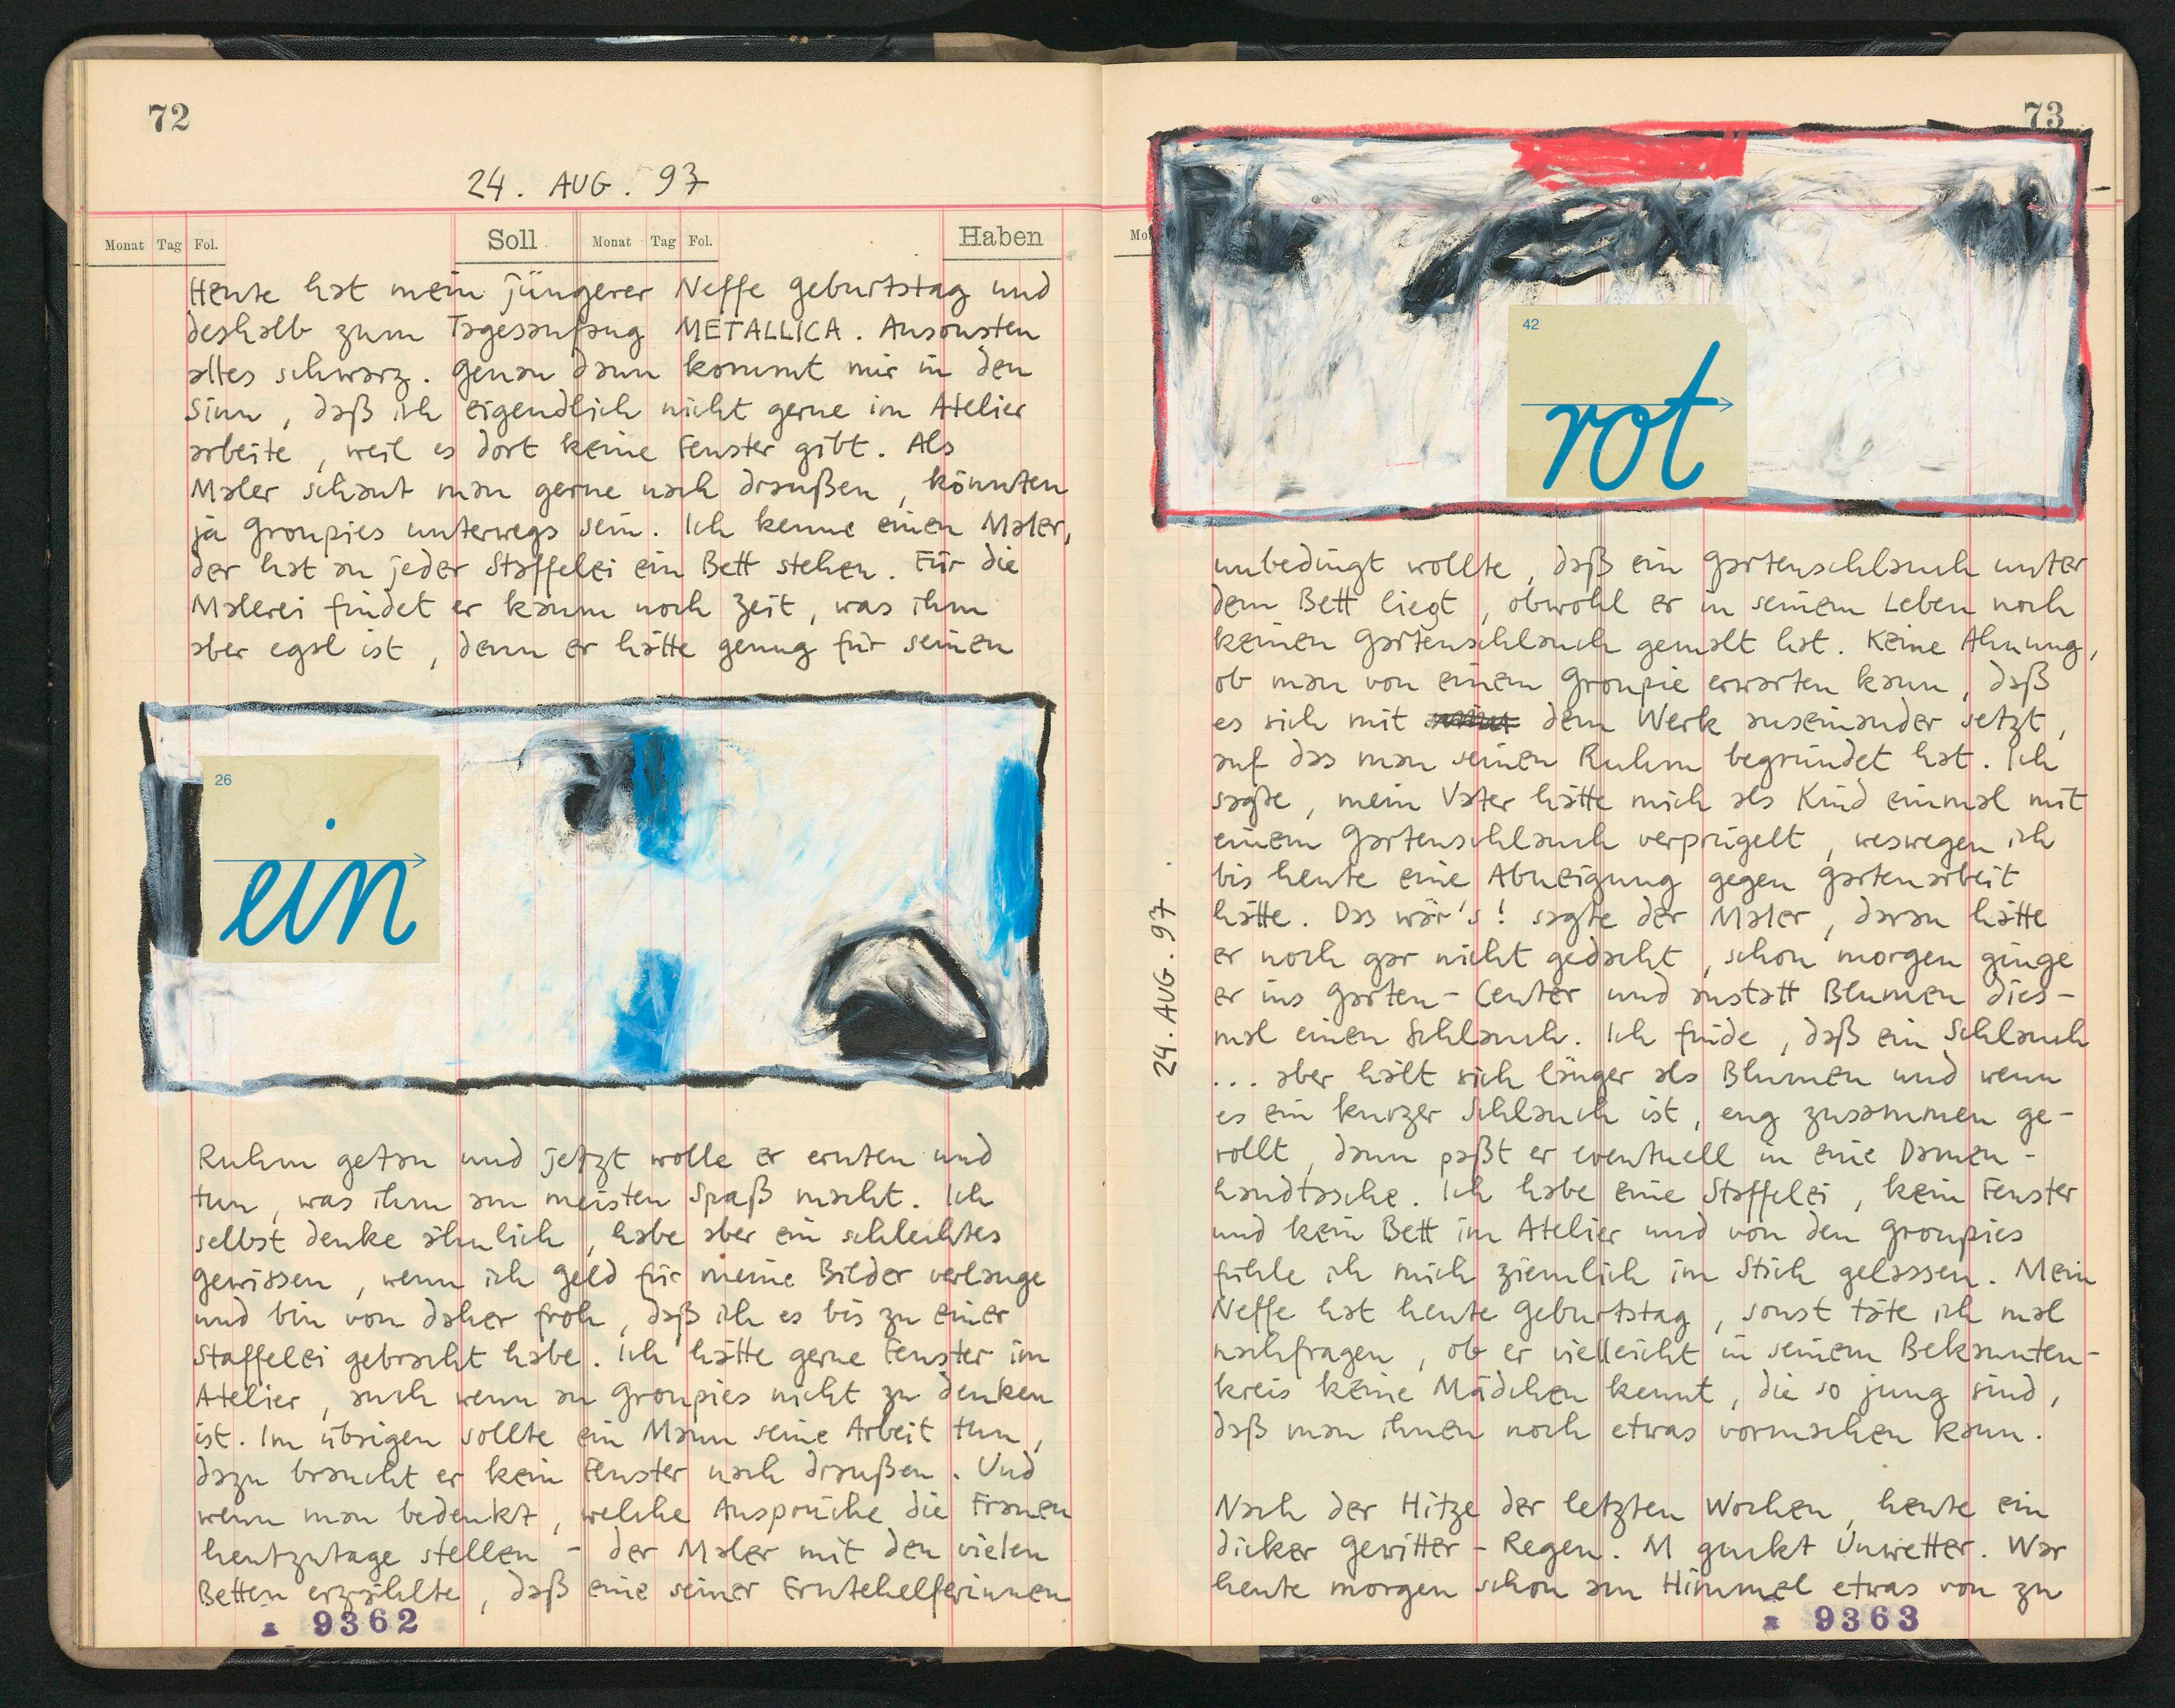 72
24. AUG. 97
Monat Tag Fol. Soll Monat Tag Fol. Haben
Heute hat mein jüngerer Neffe Geburtstag und
deshalb zum Tagesanfang METALLICA. Ansonsten
alles schwarz. Genau dann kommt mir in den
Sinn, daß ich eigendlich nicht gerne im Atelier
arbeite, weil es dort keine Fenster gibt. Als
Maler schaut man gerne nach draußen, könnten
ja Groupies unterwegs sein. Ich kenne einen Maler,
der hat an jeder Staffelei ein Bett stehen. Für die
Malerei findet er kaum noch Zeit, was ihm
aber egal ist, denn er hätte genug für seinen
26
ein
Ruhm getan und jetzt wolle er ernten und
tun, was ihm am meisten Spaß macht. Ich
selbst denke ähnlich, habe aber ein schlechtes
Gewissen, wenn ich Geld für meine Bilder verlange
und bin von daher froh, daß ich es bis zu einer
Staffelei gebracht habe. Ich hätte gerne Fenster im
Atelier, auch wenn an Groupies nicht zu denken
ist. Im übrigen sollte ein Mann seine Arbeit tun,
dazu braucht er kein Fenster nach draußen. Und
wenn man bedenkt, welche Ansprüche die Frauen
heutzutage stellen - der Maler mit den vielen
Betten erzählte, daß eine seiner Erntehelferinnen
9362
73
Mo
42
rot
unbedingt wollte, daß ein Gartenschlauch unter
dem Bett liegt, obwohl er in seinem Leben noch
keinen Gartenschlauch gemalt hat. Keine Ahnung,
ob man von einem Groupie erwarten kann, daß
es sich mit dem Werk auseinander setzt,
auf das man seinen Ruhm begründet hat. Ich
sagte, mein Vater hätte mich als Kind einmal mit
einem Gartenschlauch verprügelt, weswegen ich
bis heute eine Abneigung gegen Gartenarbeit
hätte. Das wär's! sagte der Maler, daran hätte
er noch gar nicht gedacht, schon morgen ginge
er ins Garten-Center und anstatt Blumen dies-
mal einen Schlauch. Ich finde, daß ein Schlauch
... aber hält sich länger als Blumen und wenn
es ein kurzer Schlauch ist, eng zusammen ge-
rollt, dann paßt er eventuell in eine Damen-
handtasche. Ich habe eine Staffelei, kein Fenster
und kein Bett im Atelier und von den Groupies
fühle ich mich ziemlich im Stich gelassen. Mein
Neffe hat heute Geburtstag, sonst täte ich mal
nachfragen, ob er vielleicht in seinem Bekannten-
kreis keine Mädchen kennt, die so jung sind,
daß man ihnen noch etwas vormachen kann.
Nach der Hitze der letzten Wochen, heute ein
dicker Gewitter-Regen. M guckt Unwetter. War
heute morgen schon am Himmel etwas von zu
24. AUG. 97
9363